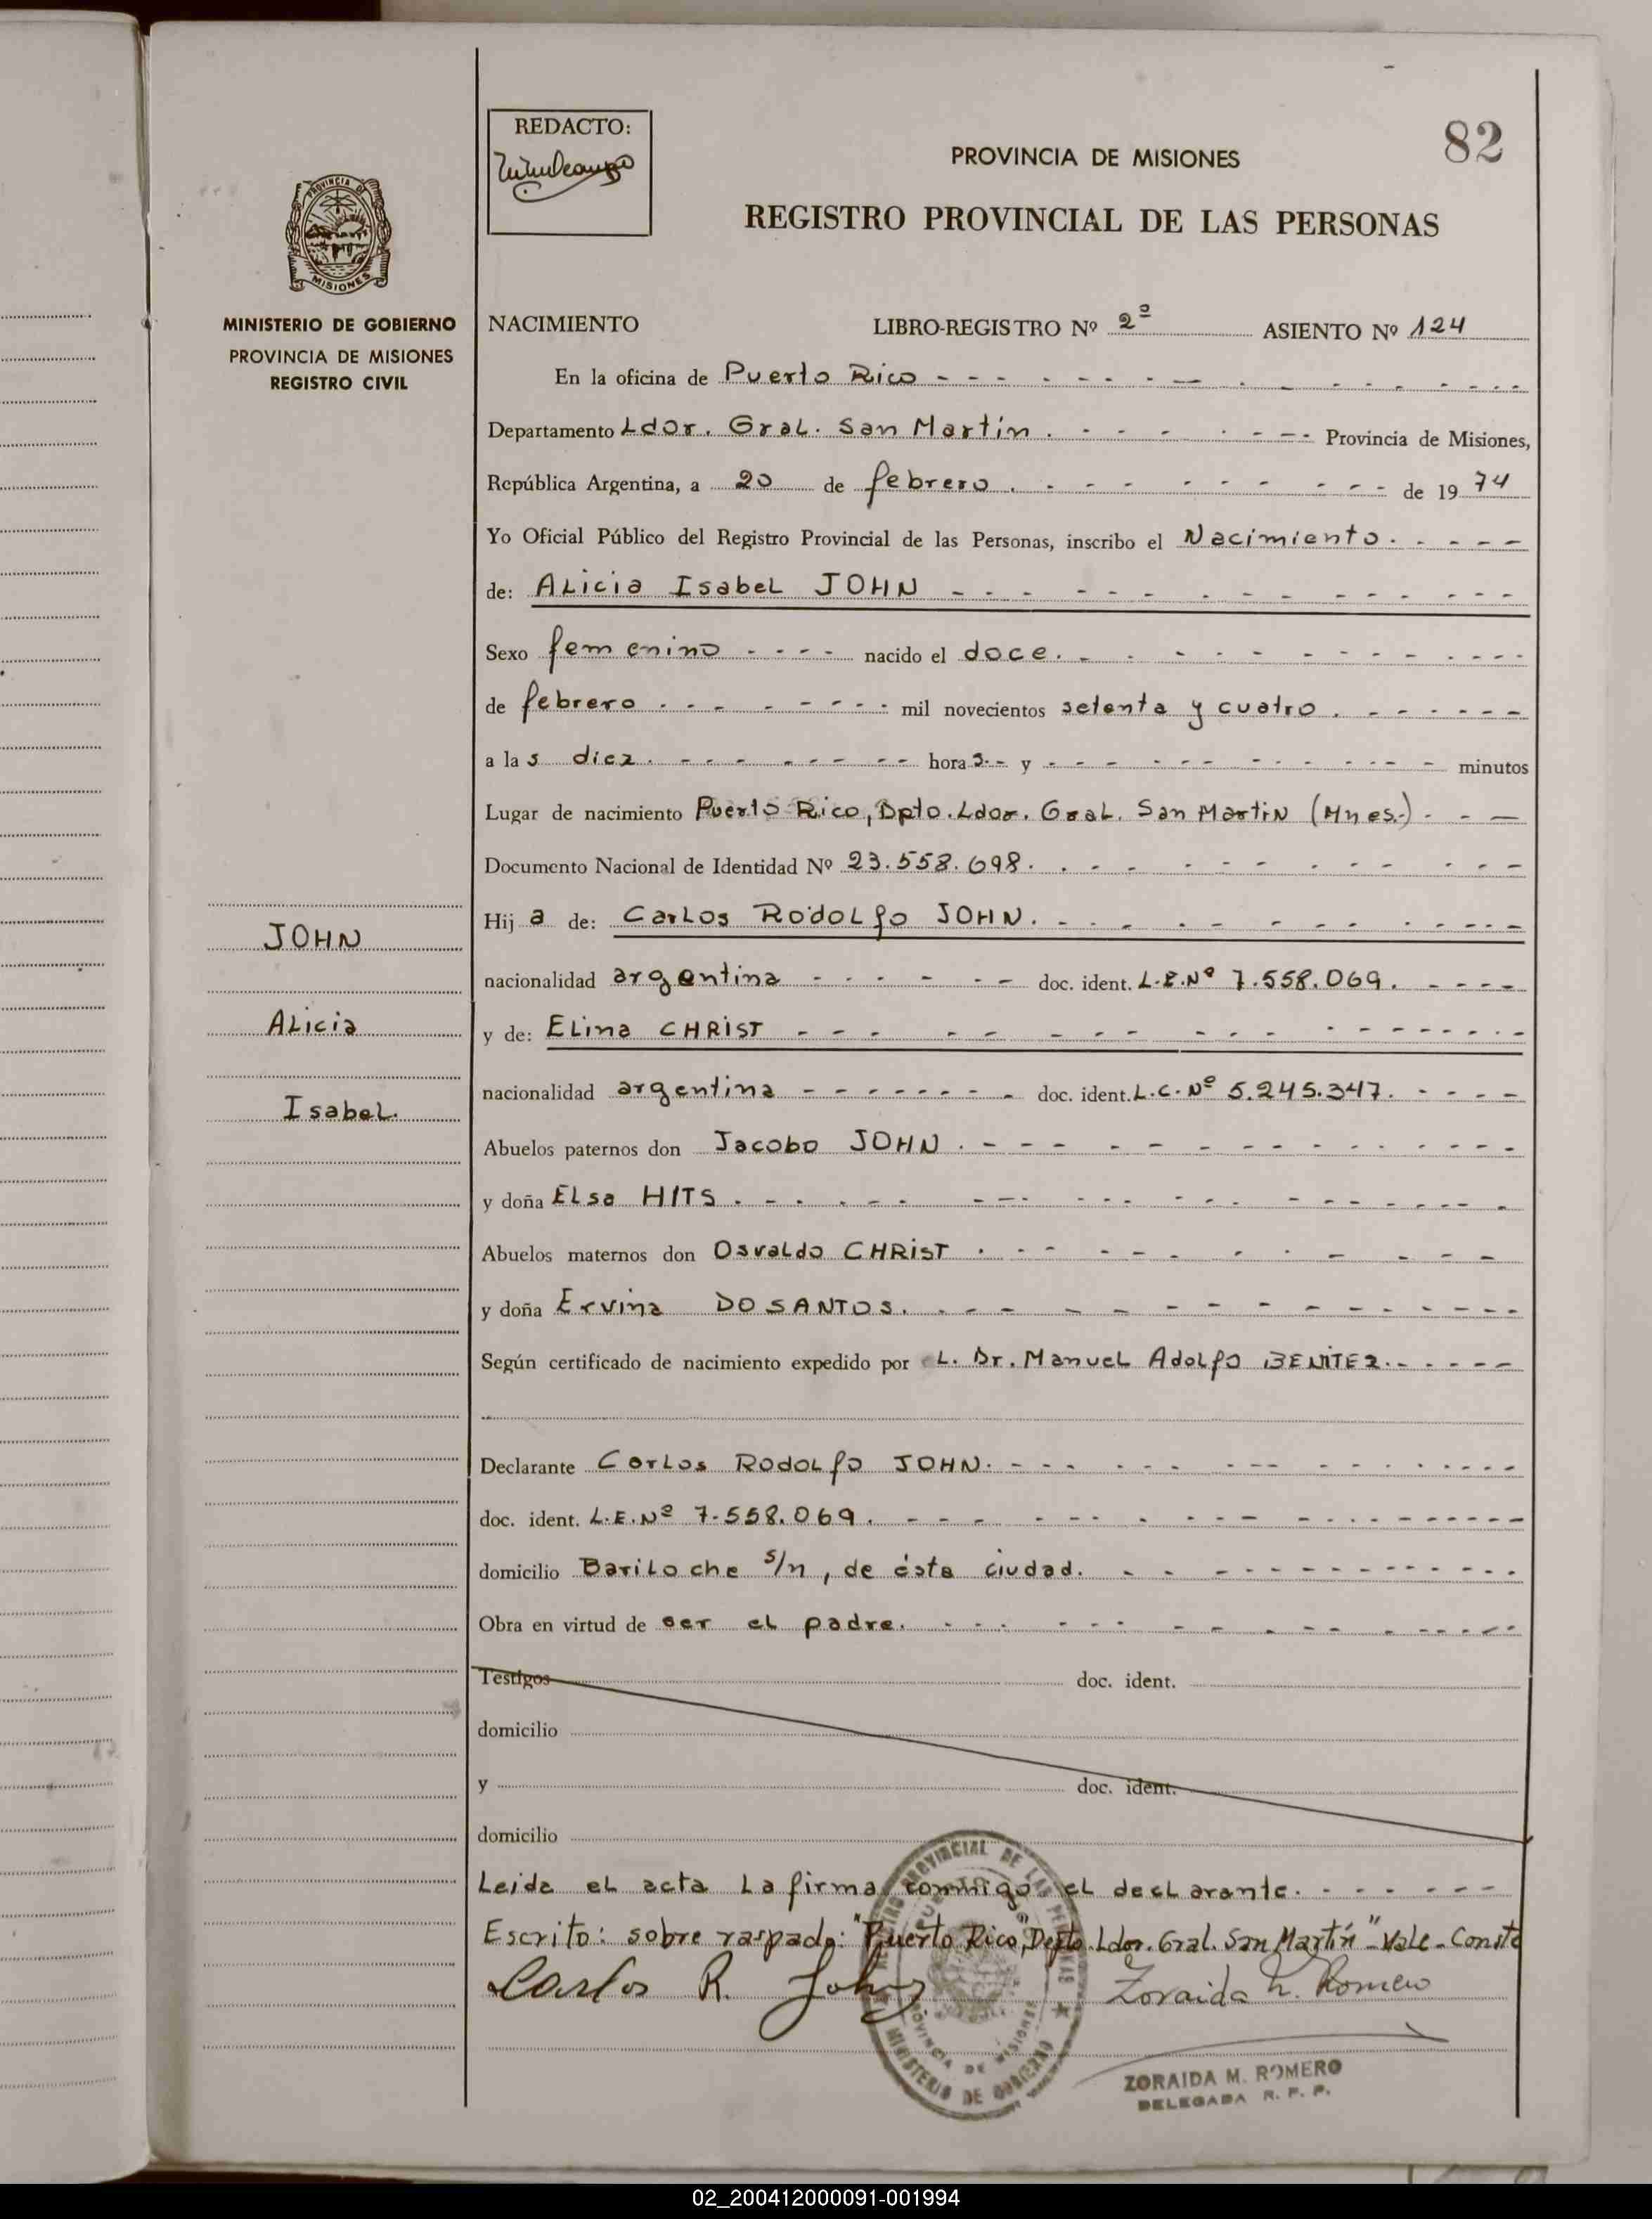 82
REDACTO:
PROVINCIA DE MISIONES
REGISTRO PROVINCIAL DE LAS PERSONAS
PROVINCIA DE
MISIONES
MINISTERIO DE GOBIERNO
PROVINCIA DE MISIONES
REGISTRO CIVIL
NACIMIENTO LIBRO-REGISTRO Nº 2º ASIENTO Nº 124
En la oficina de Puerto Rico
Departamento Ldor. Gral. San Martín. Provincia de Misiones,
República Argentina, a 20 de febrero. de 1974
Yo Oficial Público del Registro Provincial de las Personas, inscribo el Nacimiento.
de: Alicia Isabel JOHN
Sexo femenino nacido el doce.
de febrero mil novecientos setenta y cuatro.
a las diez. horas.- y minutos
Lugar de nacimiento Puerto Rico, Dpto. Ldor. Gral. San Martin (Mnes.)
Documento Nacional de Identidad Nº 23.558.698.
Hija de: Carlos Rodolfo JOHN.
nacionalidad argentina doc. ident. L.E.Nº 7.558.069.
y de: Elina CHRIST
nacionalidad argentina doc. ident. L.C.Nº 5.245.347.
Abuelos paternos don Jacobo JOHN.
y doña Elsa HITS.
Abuelos maternos don Osvaldo CHRIST
y doña Ervina DO SANTOS.
Según certificado de nacimiento expedido por eL. Dr. Manuel Adolfo BENITEZ.
Declarante Carlos Rodolfo JOHN.
doc. ident. L.E.Nº 7.558.069.
domicilio Bariloche s/n, de ésta ciudad.
Obra en virtud de ser el padre.
Testigos doc. ident.
domicilio
y doc. ident.
domicilio
Leida el acta la firma conmigo el declarante.
Escrito: sobre raspado: "Puerto Rico, Depto. Ldor. Gral. San Martín" - Vale - Conste
Carlos R. John Zoraida M. Romero
REGISTRO PROVINCIAL DE LAS PERSONAS
PROVINCIA DE MISIONES
MINISTERIO DE GOBIERNO
ZORAIDA M. ROMERO
DELEGADA R. P. P.
JOHN
Alicia
Isabel.
02_200412000091-001994